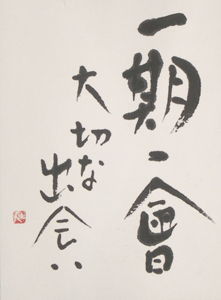 一期一會
大切な
出会い